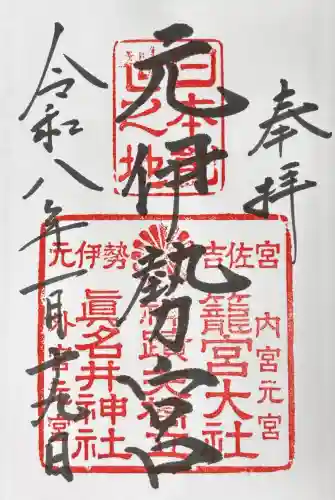 奉拝
元伊勢宮
令和八年一月十九日
日本
之地
元伊勢
吉佐宮
内宮元宮
籠宮大社
眞名井神社
外宮元宮